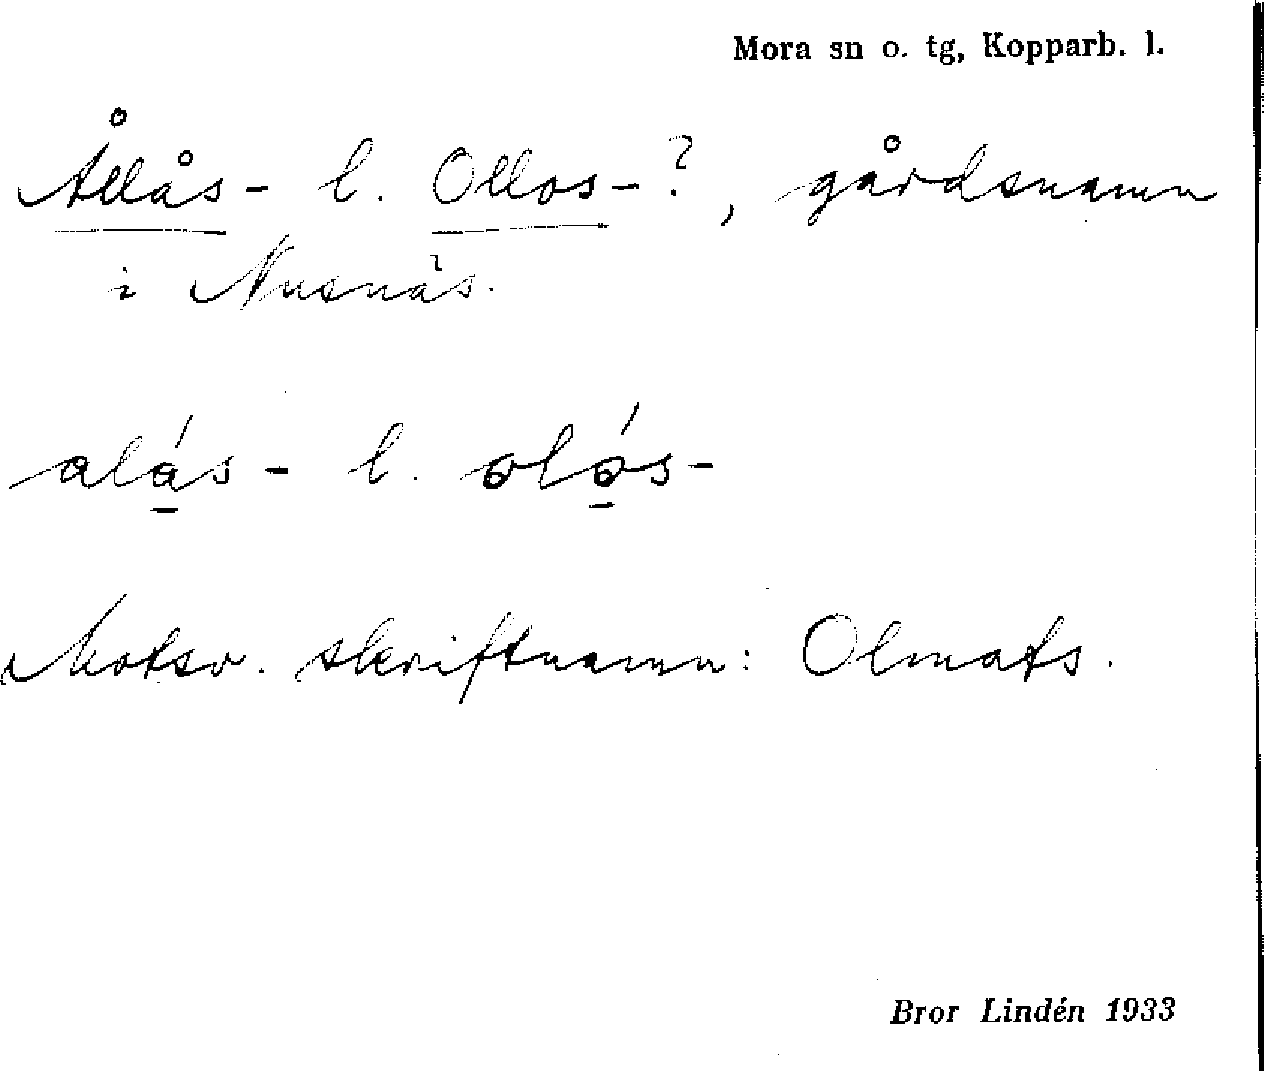 Mora sn o. tg, Kopparb. l.
Ållås- l. Ollos-?, gårdsnamn
i Nusnäs.
alá̱s- l. oló̱s-
Motsv. skriftnamn: Olmats.
Bror Lindén 1933